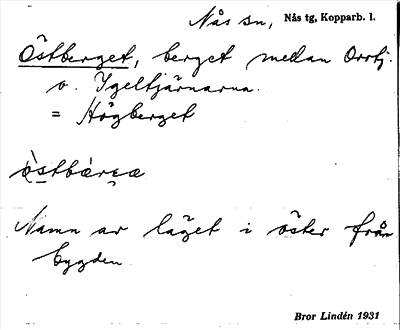 Nås sn, Nås tg, Kopparb. l.
Östberget, berget mellan Orrtj.
o. Igeltjärnarna.
= Högberget
Namn av läget i öster från
bygden
Bror Lindén 1931